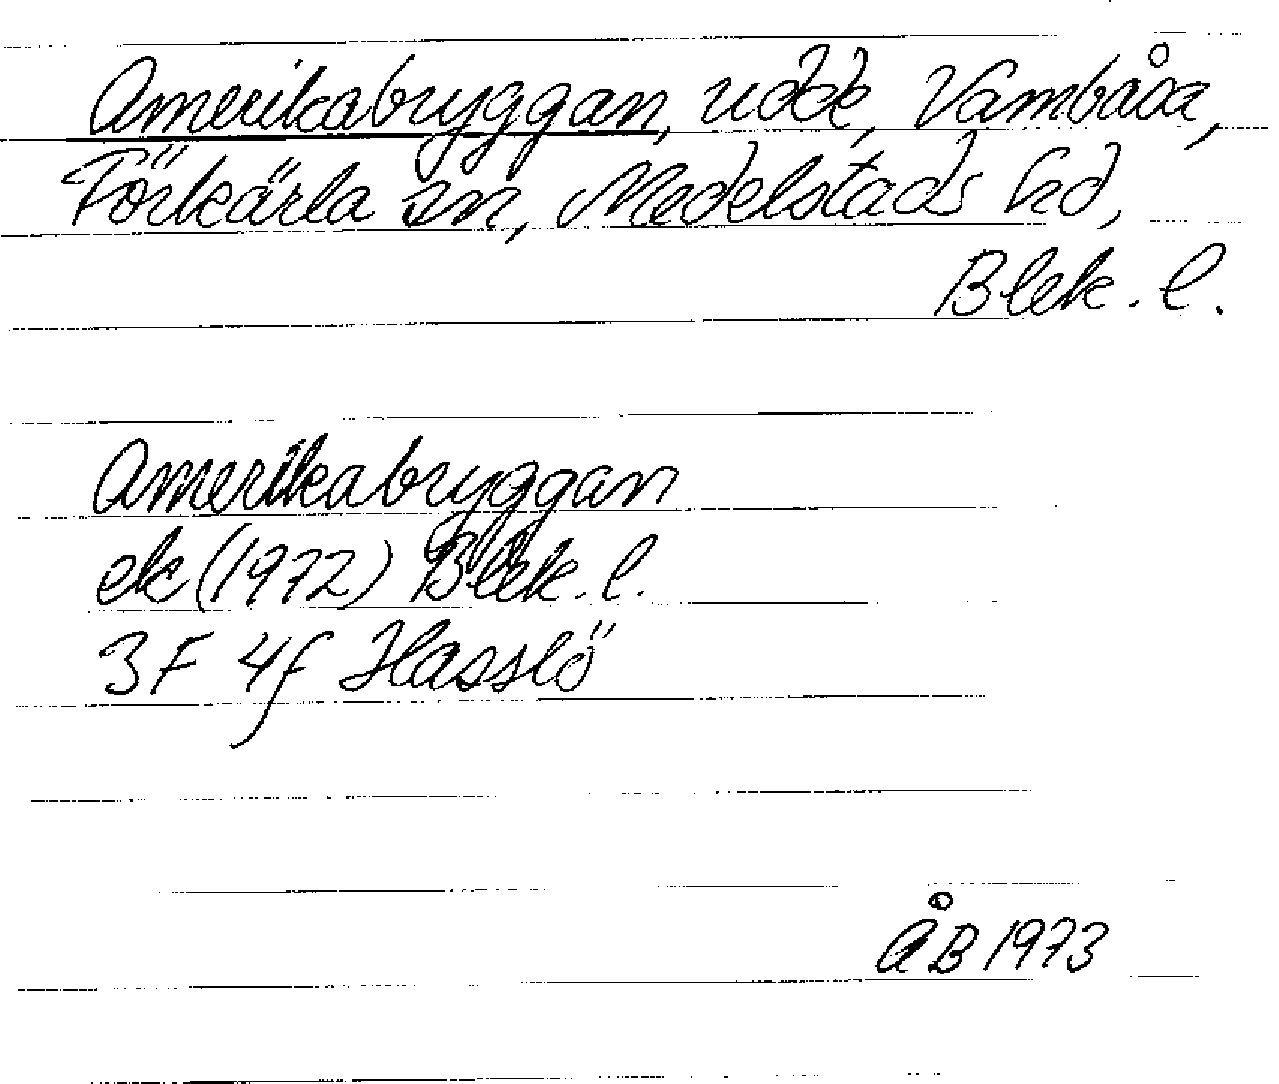 Amerikabryggan, udde, Vambåsa,
Förkärla sn, Medelstads hd,
Blek. l.
Amerikabryggan
ek (1972) Blek. l.
3F 4f Hasslö
ÅB 1973